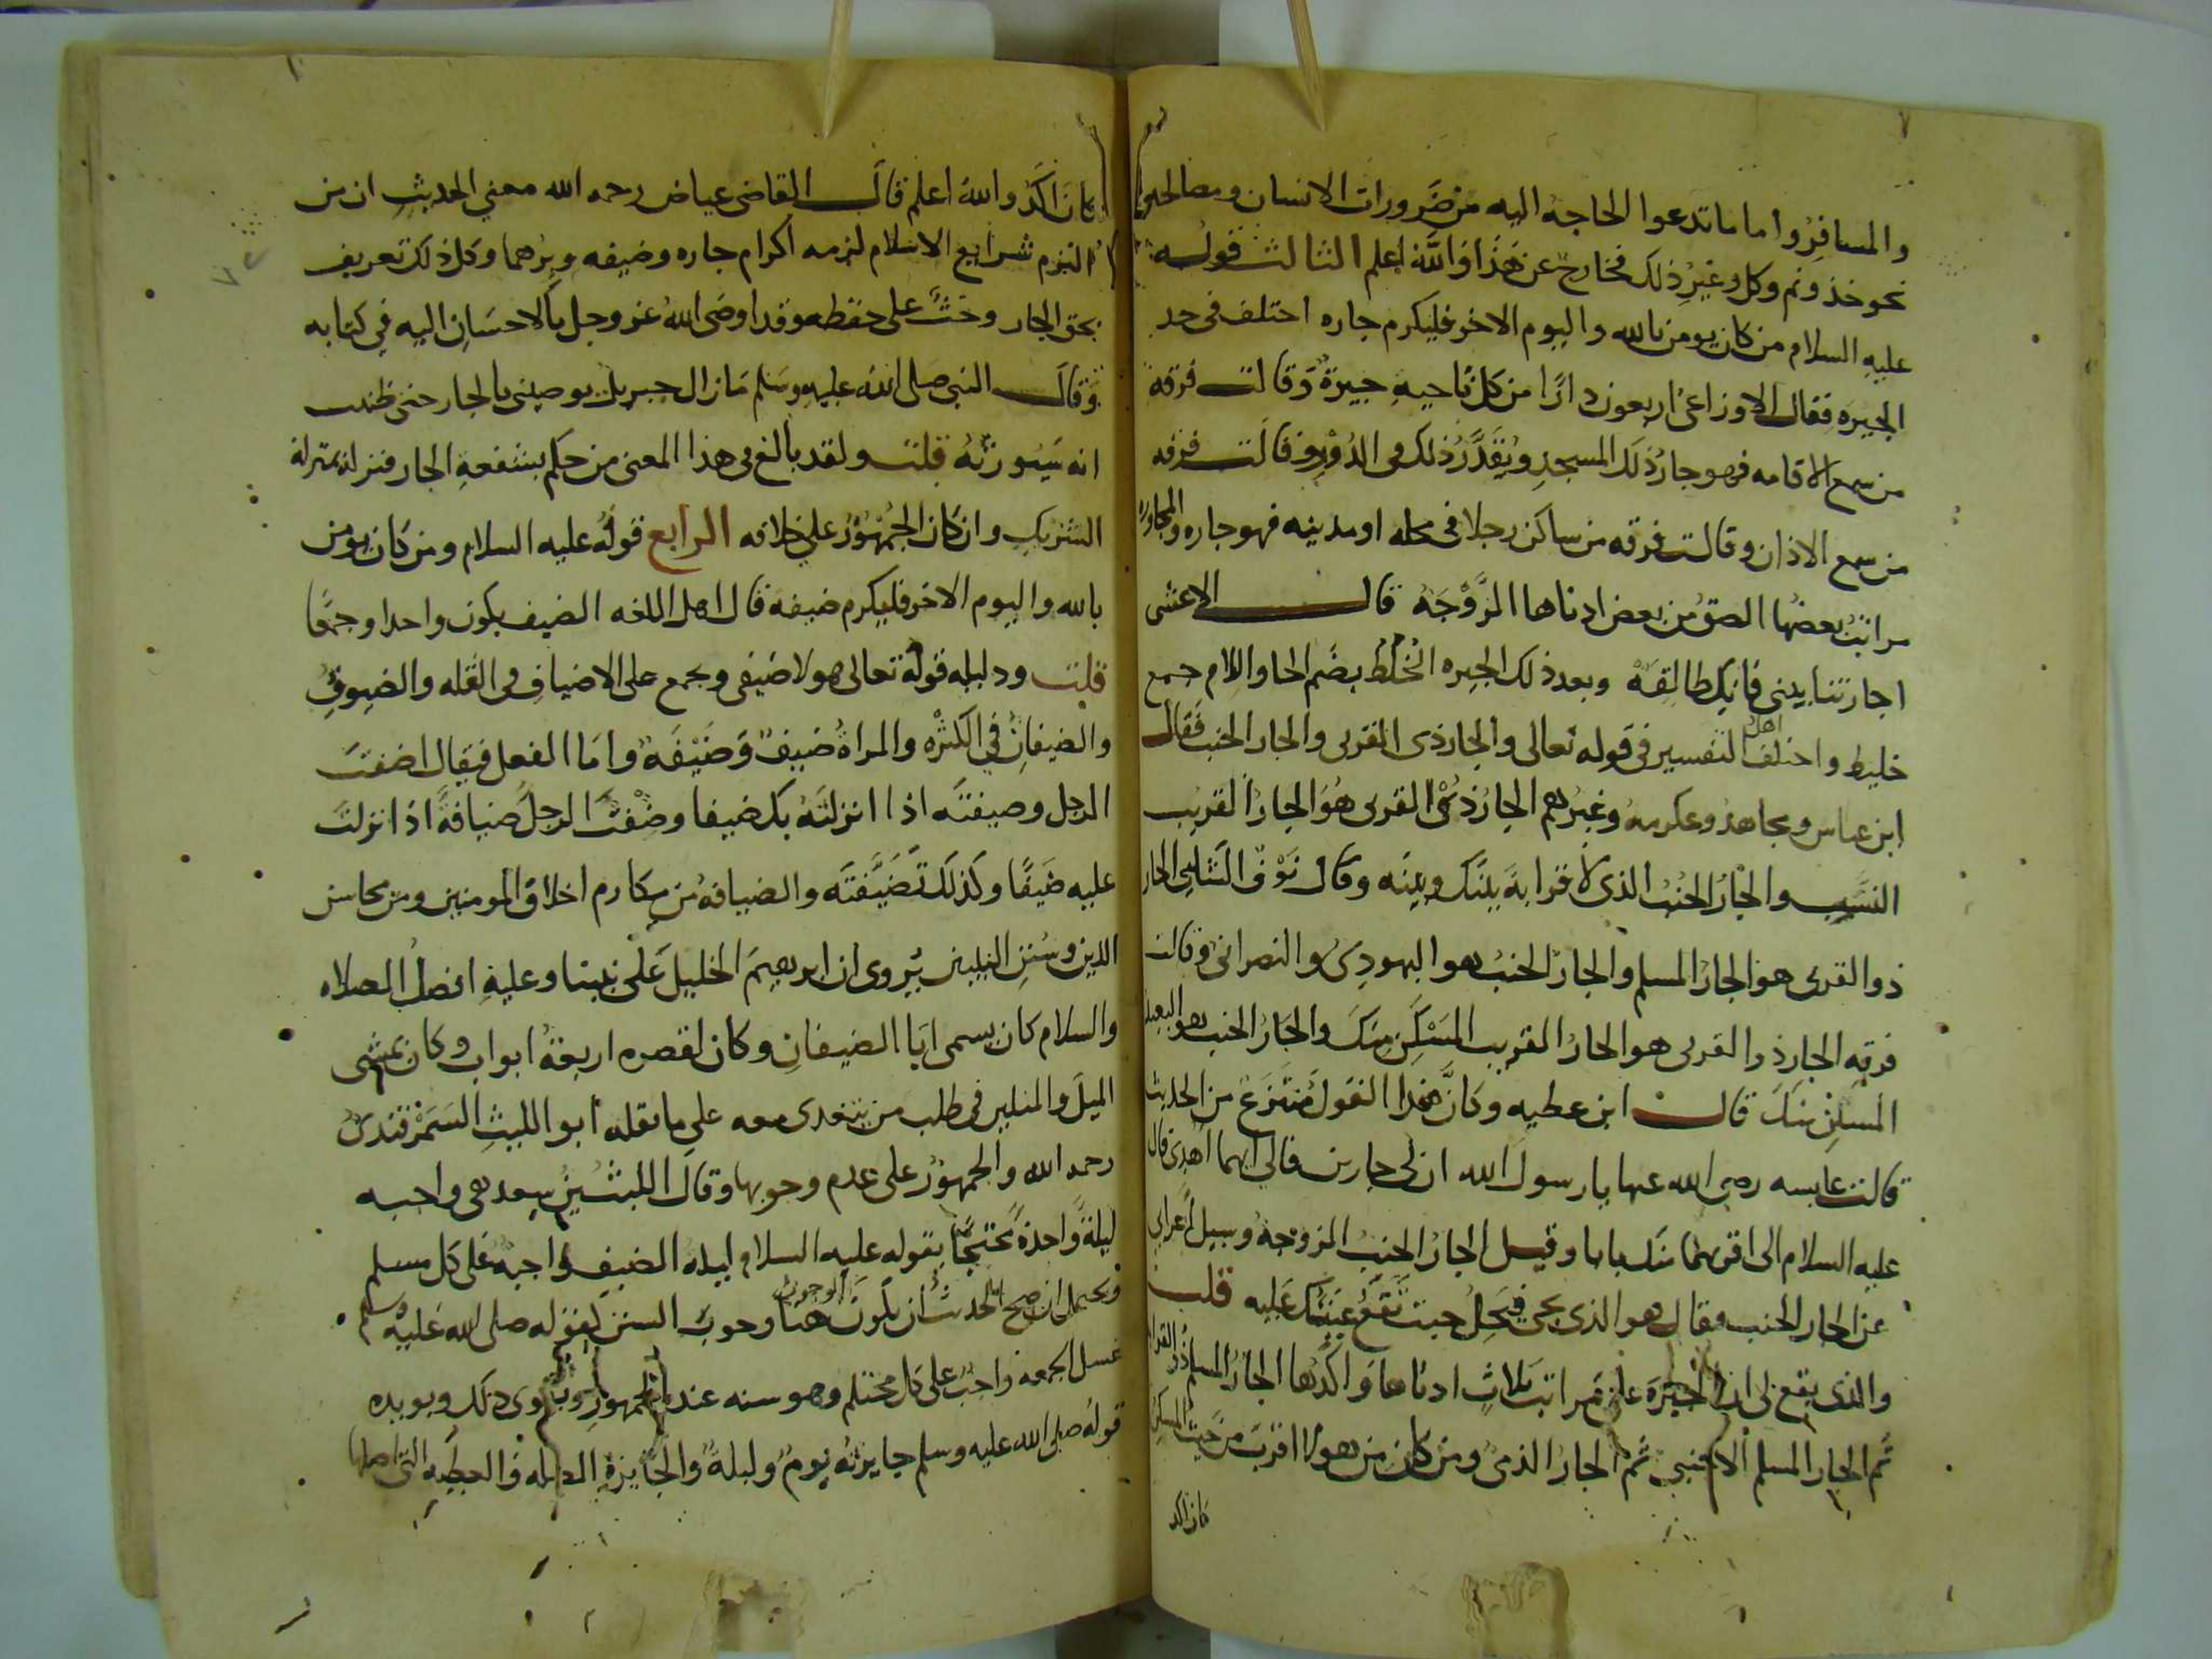 والمسافر واما ما تدعوا الحاجة اليه من ضرورات الانسان ومصالحه
نحو خذ ونم وكل وغير ذلك فخارج عن هذا والله اعلم الثالث قوله
عليه السلام من كان يومن بالله واليوم الاخر فليكرم جاره اختلف في حد
الجيره فقال الاوزاعى اربعون دارا من كل ناحية جيرة وقالت فرقة
من سمع الاقامه فهو جار ذلك المسجد ويقدر ذلك في الدور وقالت فرقه
من سمع الاذان وقالت فرقه من ساكن رجلا في محله او مدينه فهو جاره والمجاورة
مراتب بعضها الصق من بعض ادناها الزوجة قال الاعشى
اجارتنا بيني فانك طالقة وبعد ذلك الجيره الخلط بضم الخا واللام جمع
خليط واختلف اهل التفسير في قوله تعالى والجار ذى القربى والجار الجنب فقال
ابن عباس ومجاهد وعكرمة وغيرهم الجار ذى القربى هو الجار القريب
النسب والجار الجنب الذى لا قرابة بينك وبينه وقال نوف الشامى الجار
ذو القربى هو الجار المسلم والجار الجنب هو اليهودى والنصرانى وقالت
فرقه الجار ذو القربى هو الجار القريب المسكن منك والجار الجنب هو البعيد
المسكن منك قال ابن عطيه وكان هذا القول منتزع من الحديث
قالت عايشه رضى الله عنها يا رسول الله ان لى جارين فالى ايهما اهدى قال
عليه السلام الى اقربهما منك بابا وقيل الجار الجنب الزوجة وسيل اعرابى
عن الجار الجنب فقال هو الذى يجى فيحل حيث تقع عينك عليه قلت
والذى يقع لى ان الجيرة على مراتب ثلاث ادناها واكدها الجار المسلم ذو القرابه
ثم الجار المسلم الاجنبي ثم الجار الذمى ومن كان من هولا اقرب من حيث المسكن
كان اكد
كان اكد والله اعلم قال القاضى عياض رحمه الله معنى الحديث ان من
التزم شرايع الاسلام لزمه اكرام جاره وضيفه وبرهما وكل ذلك تعريف
بحق الجار وحث على حفظه وقد اوصى الله عز وجل بالاحسان اليه في كتابه
وقال النبى صلى الله عليه وسلم ما زال جبريل يوصينى بالجار حتى ظننت
انه سيورثه قلت ولقد بالغ في هذا المعنى من حكم بشفعة الجار فنزله بمنزلة
الشريك وان كان الجمهور على خلافه الرابع قوله عليه السلام ومن كان يومن
بالله واليوم الاخر فليكرم ضيفه قال اهل اللغه الضيف يكون واحدا وجمعا
قلت ودليله قوله تعالى هولا ضيفى ويجمع على الاضياف في القله والضيوف
والضيفان في الكثره والمراة ضيف وضيفة واما الفعل فيقال اضفت
الرجل وضيفته اذا انزلته بك ضيفا وضفت الرجل ضيافة اذا نزلت
عليه ضيفا وكذلك تضيفته والضيافة من مكارم اخلاق المومنين ومن محاسن
الدين وسنن النبيين يروى ان ابرهيم الخليل على نبينا وعليه افضل الصلاه
والسلام كان يسمى ابا الضيفان وكان لقصره اربعة ابواب وكان يمشى
الميل والميلين في طلب من يتغدى معه على ما نقله ابو الليث السمرقندى
رحمه الله والجمهور على عدم وجوبها وقال الليث بن سعد هى واجبه
ليلة واحدة محتجا بقوله عليه السلام ليلة الضيف واجبة على كل مسلم
ويحتمل ان صح الحديث ان يكون الوجوب هنا وجوب السنن كقوله صلى الله عليه وسلم
غسل الجمعه واجب على كل محتلم وهو سنه عند الجمهور ذلك ويويده
قوله صلى الله عليه وسلم جايزته يوم وليلة والجايزة الصله والعطيه التى اصلها